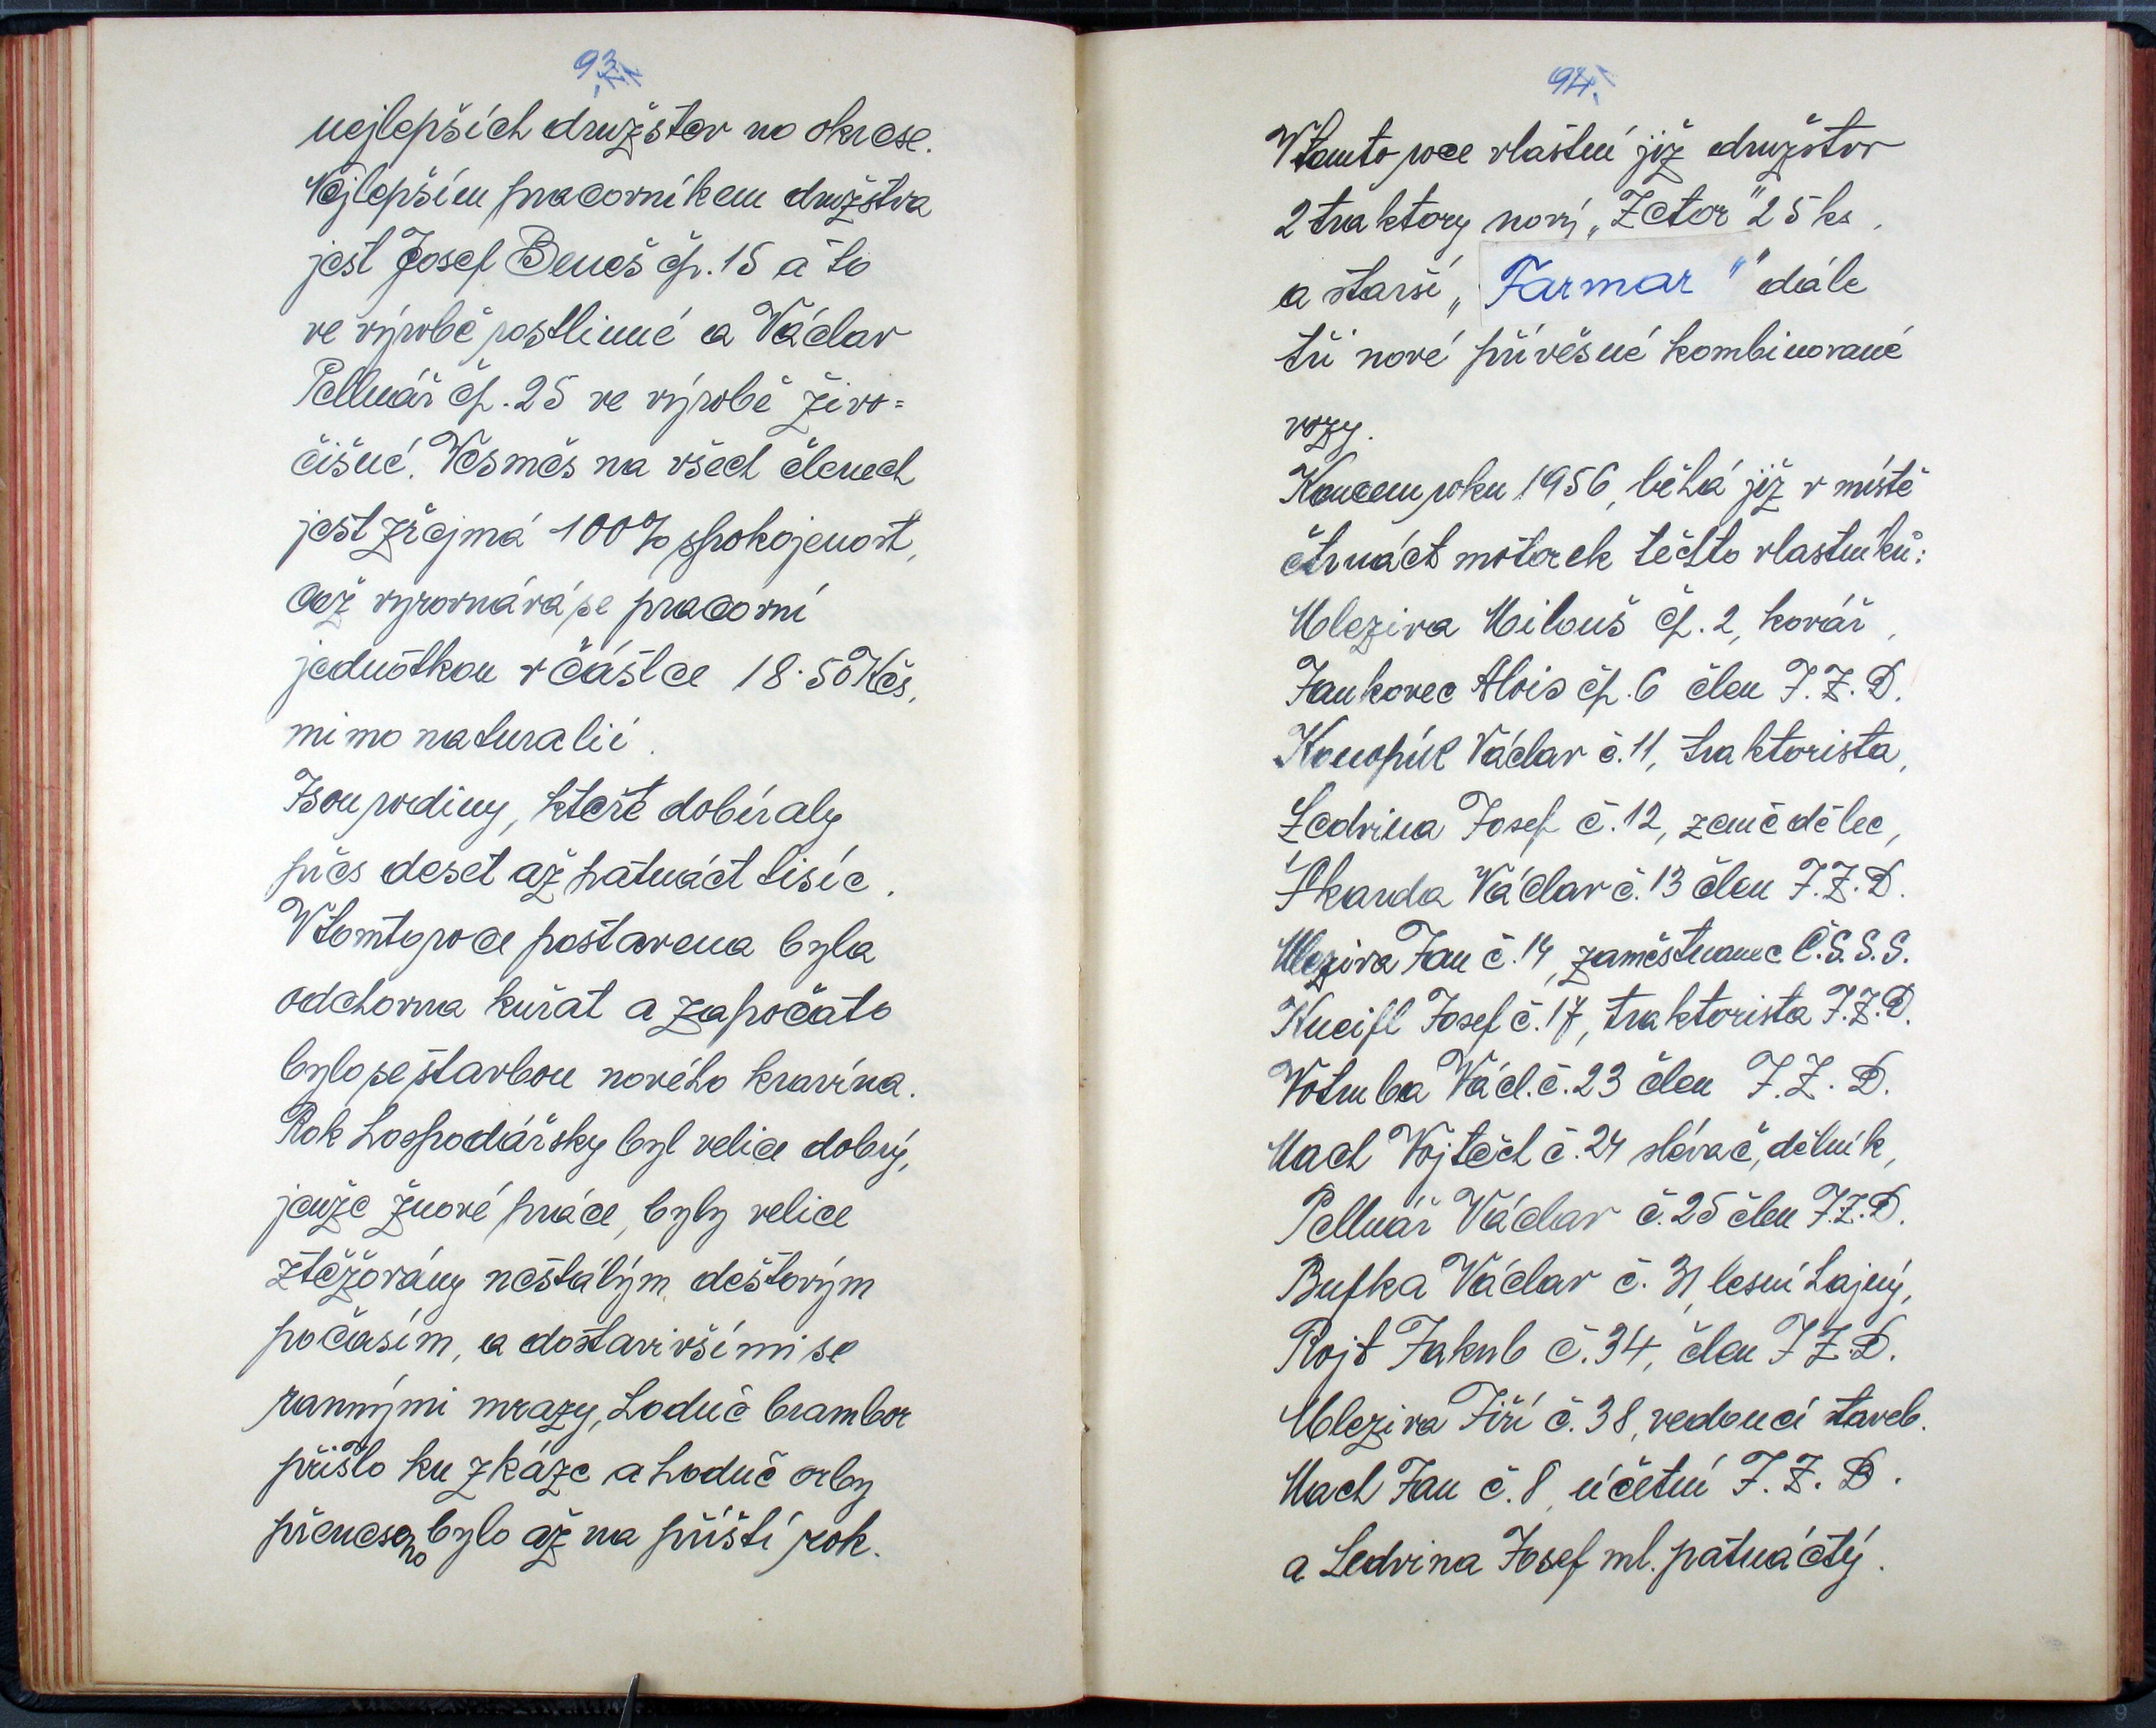 93.
nejlepších družstev na okrese.
Nejlepším pracovníkem družstva
jest Josef Beneš čp. 15 a to
ve výrobě rostlinné a Václav
Pellnář čp. 25 ve výrobě živo=
čišné. Vesměs na všech členech
jest zřejmá 100% spokojenost,
což vyrovnává se pracovní
jednotkou v částce 18·50 Kčs,
mimo naturalií.
Jsou rodiny, které dobíraly
přes deset až patnáct tisíc.
V tomto roce postavena byla
odchovna kuřat a započato
bylo se stavbou nového kravína.
Rok hospodářsky byl velice dobrý,
jenže žnové práce, byly velice
ztěžovány nestálým deštovým
počasím, a dostavivšími se
rannými mrazy, hodně brambor
přišlo ku zkáze a hodně orby
přeneseno bylo až na příští rok.
94.
V tomto roce vlastní již družstvo
2 traktory nový „Zetor" 25 ks.
a starší „Farmar" dále
tři nové přívěsné kombinované
vozy.
Koncem roku 1956, běhá již v místě
čtrnáct motorek těchto vlastníků:
Mleziva Milouš čp. 2, kovář,
Jankovec Alois čp. 6 člen J.Z.D.
Konopík Václav č. 11, traktorista,
Ledvina Josef č. 12, zemědělec,
Škarda Václav č. 13 člen J.Z.D.
Mleziva Jan č. 14, zaměstnanec Č.S.S.S.
Kneifl Josef č. 17, traktorista J.Z.D.
Votruba Václ. č. 23 člen J.Z.D.
Mach Vojtěch č. 24 slévač, dělník,
Pellnář Václav č. 25 člen J.Z.D.
Bufka Václav č. 31, lesní hajný,
Rojt Jakub č. 34, člen J.Z.D.
Mleziva Jiří č. 38, vedoucí staveb.
Mach Jan č. 8, účetní J.Z.D.
a Ledvina Josef ml. patnáctý.